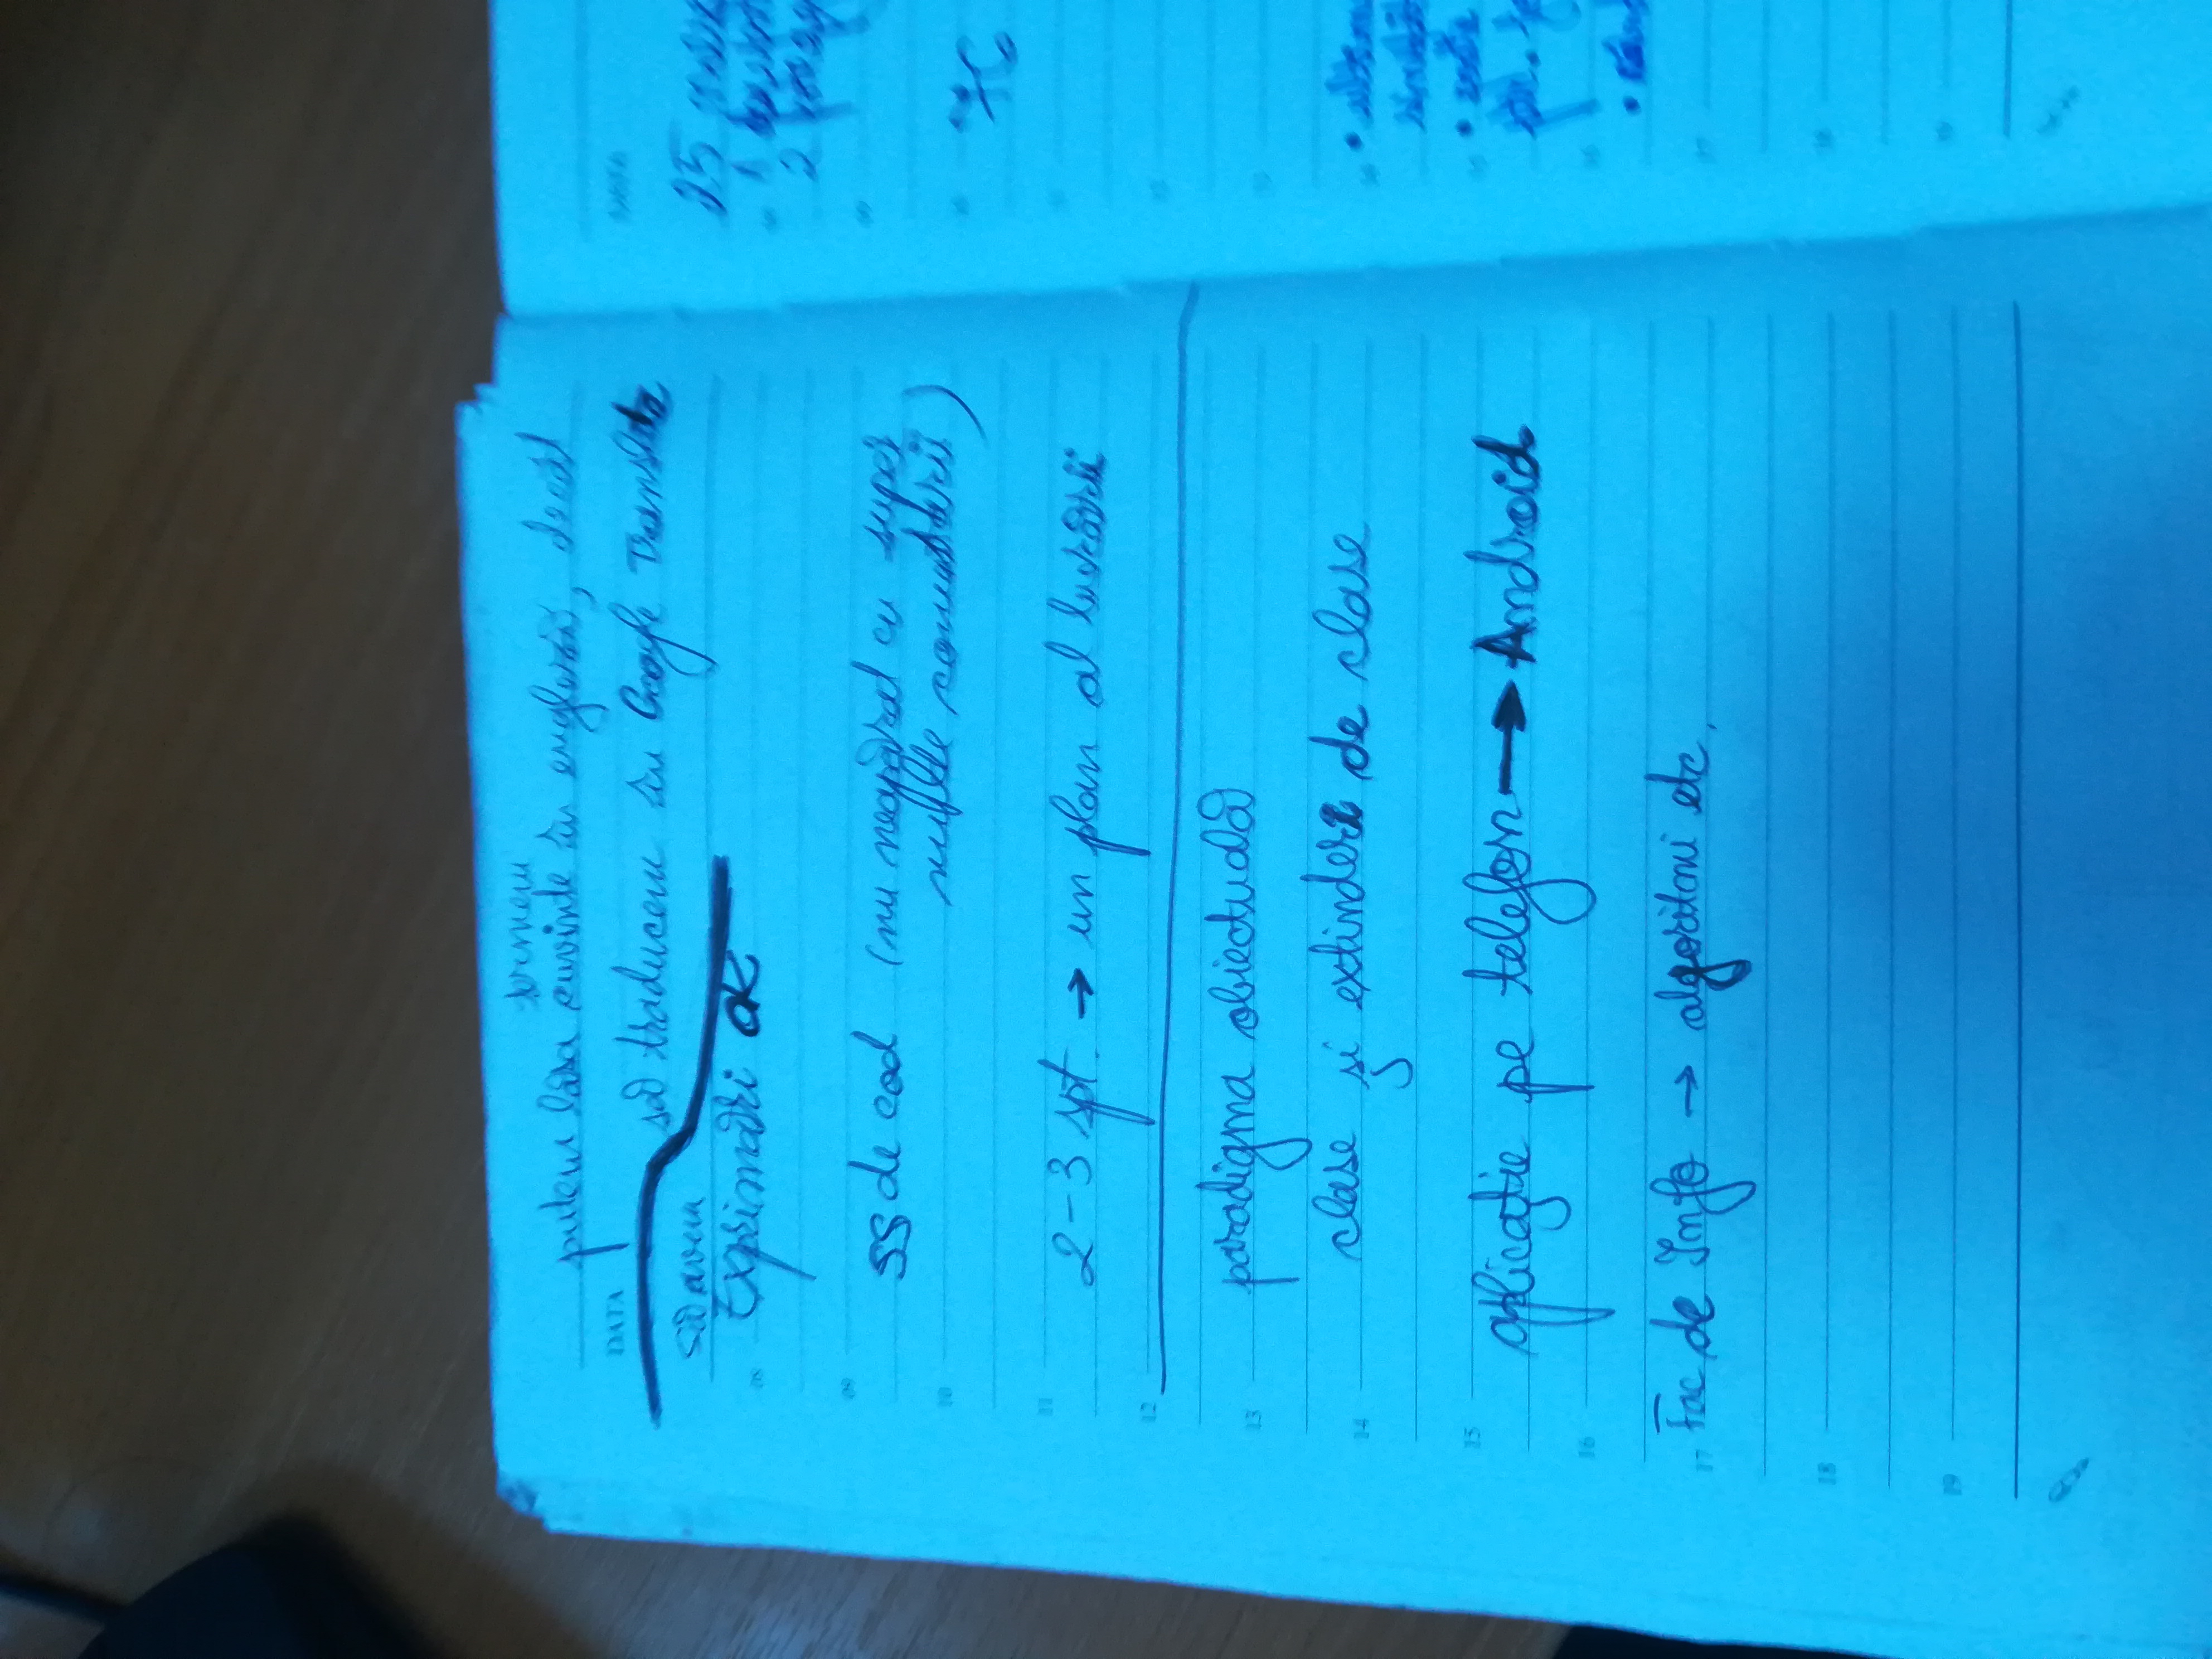 termeni
putem lăsa cuvinte în engleză, decât
DATA
să traducem în Google Translate
Să avem
Exprimări OK
08
09
ss de cod (nu neapărat cu super
10
multe comentarii)
11
2-3 spt. → un plan al lucrării
12
paradigma obiectuală
13
clase și extindere de clase
14
15
aplicație pe telefon → Android
16
Fac de Info → algoritmi etc.
17
18
19
DATA
25
1
2
76